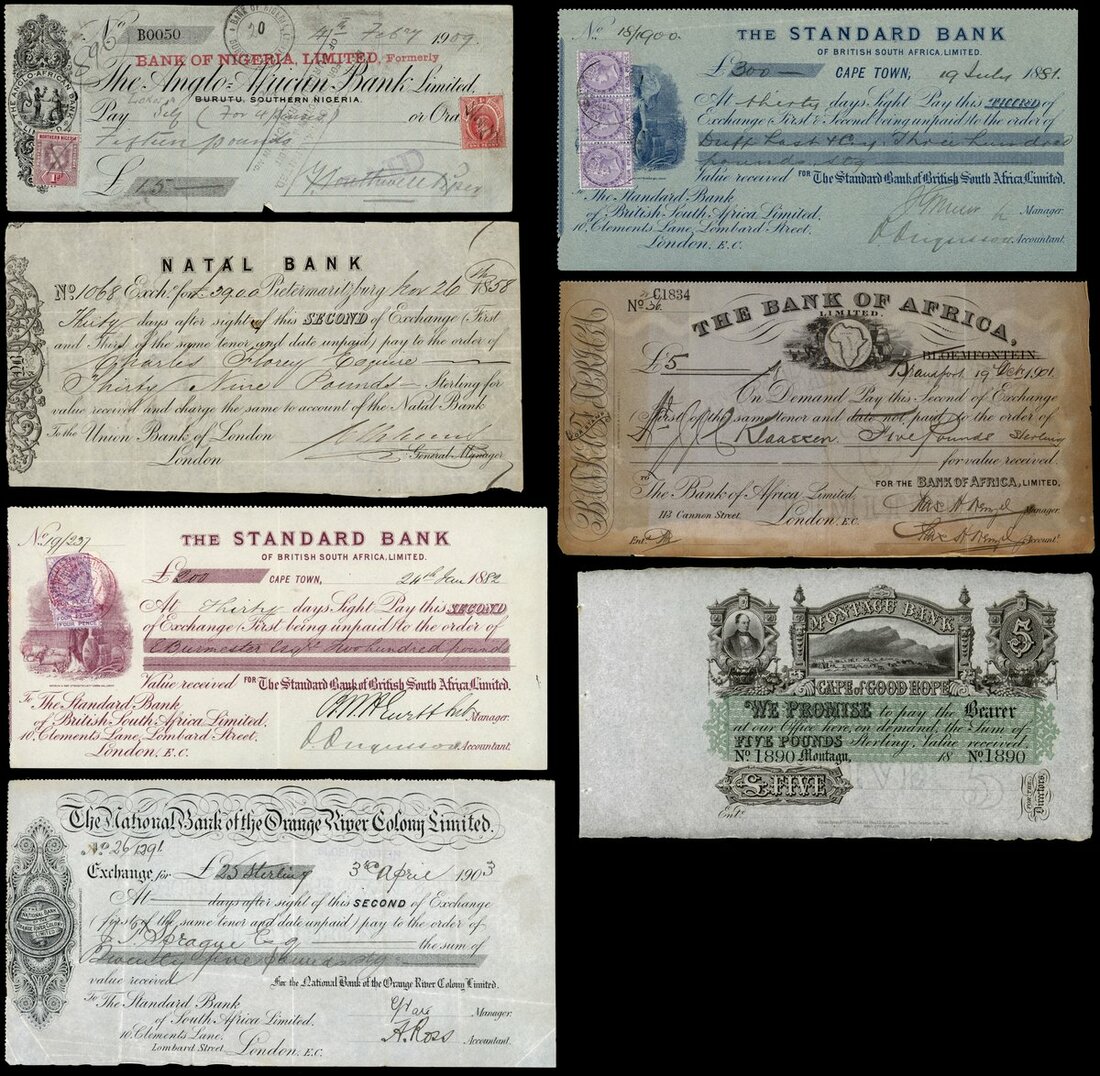 No B0050
BANK OF NIGERIA, LIMITED, Formerly
The Anglo-African Bank Limited.
BURUTU, SOUTHERN NIGERIA.
4th Feb'y 1909
20
THE ANGLO-AFRICAN BANK LIMITED
Pay Self or Order
Fifteen pounds
NORTHERN NIGERIA
1d
£ 15
NATAL BANK
No. 1068 Exch. for £39.0.0 Pietermaritzburg Nov 26th 1858
Thirty days after sight of this SECOND of Exchange (First
and Third of the same tenor and date unpaid) pay to the order of
Charles Florey Esquire
Thirty Nine Pounds Sterling for
value received and charge the same to account of the Natal Bank
To the Union Bank of London
London
General Manager
No. 19/237
THE STANDARD BANK
OF BRITISH SOUTH AFRICA, LIMITED.
£200 CAPE TOWN, 24th Jan 1882
FOUR PENCE
At Thirty days Sight Pay this SECOND
of Exchange (First being unpaid) to the order of
Burmester Esqre Two hundred pounds
Value received FOR The Standard Bank of British South Africa, Limited.
To The Standard Bank
of British South Africa Limited,
10, Clements Lane, Lombard Street,
London, E.C.
Manager.
Accountant.
The National Bank of the Orange River Colony Limited.
No. 26/1291
Exchange for £25 Sterling 3rd April 1903
At days after sight of this SECOND of Exchange
(first of the same tenor and date unpaid) pay to the order of
Sprague Esq the sum of
Twenty five pounds stg
value received For the National Bank of the Orange River Colony Limited.
THE NATIONAL BANK OF THE ORANGE RIVER COLONY LIMITED
To The Standard Bank
of South Africa Limited,
10, Clements Lane,
Lombard Street, London, E.C.
Manager.
A. Ross Accountant.
No 18/1900
THE STANDARD BANK
OF BRITISH SOUTH AFRICA, LIMITED.
£300 CAPE TOWN, 19 July 1881.
At thirty days Sight Pay this SECOND of
Exchange (First & Second being unpaid) to the order of
Three hundred
pounds stg
Value received FOR The Standard Bank of British South Africa, Limited.
To The Standard Bank
of British South Africa Limited,
10, Clements Lane, Lombard Street,
London, E.C.
Manager.
Accountant.
C1834
No. 36.
THE BANK OF AFRICA,
LIMITED.
BLOEMFONTEIN.
£5 Brandfort 19 Oct 1901
On Demand Pay this Second of Exchange
(first of the same tenor and date not paid) to the order of
Klaassen Five Pounds Sterling
for value received.
BANK OF AFRICA
FOR THE BANK OF AFRICA, LIMITED,
To The Bank of Africa Limited,
113 Cannon Street, London, E.C.
Manager.
Entd.
Accountt.
MONTAGU BANK
5
CAPE OF GOOD HOPE
WE PROMISE to pay the Bearer
at our Office here, on demand, the Sum of
FIVE POUNDS Sterling, Value received,
No 1890 Montagu, 18 No 1890
£ FIVE
FOR THE Directors.
Entd.